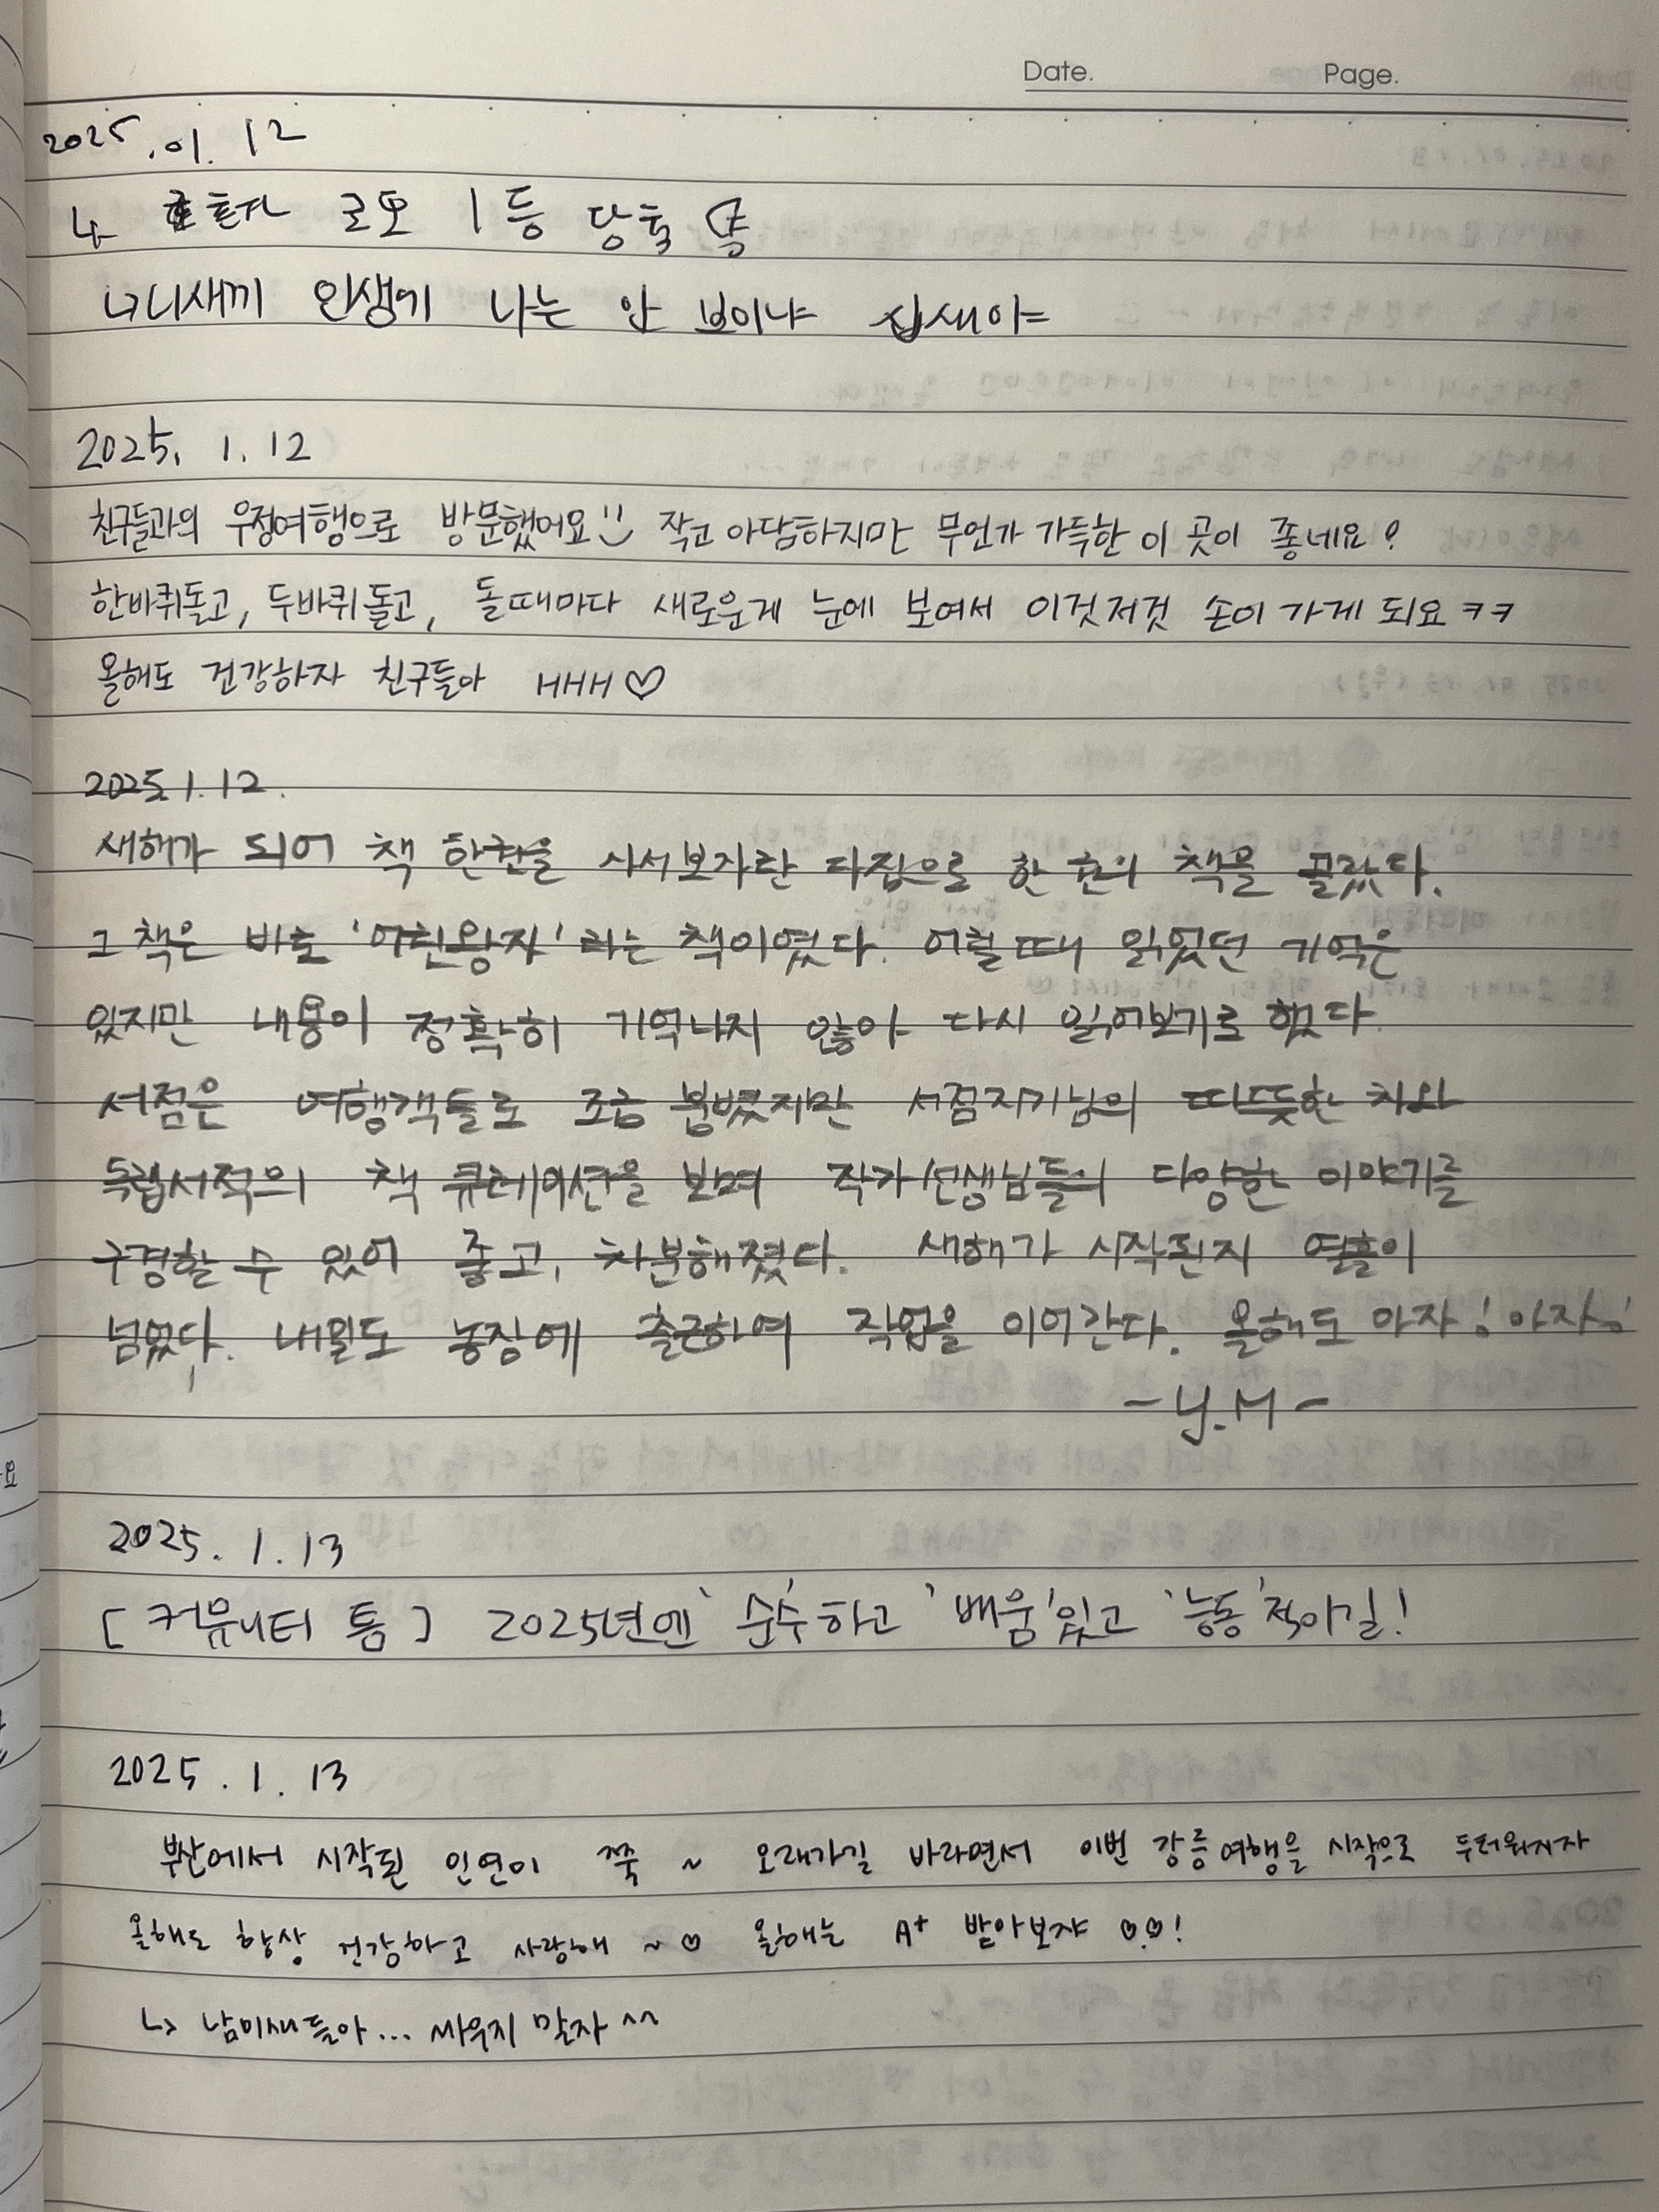 Date. Page.
2025.01.12
↳ 로또 1등 당
너니새끼 인생기 나는 안 보이냐 십새야
2025. 1. 12
친구들과의 우정여행으로 방문했어요 작고 아담하지만 무언가 가득한 이 곳이 좋네요?
한바퀴돌고, 두바퀴돌고, 돌때마다 새로운게 눈에 보여서 이것저것 손이 가게 되요 ㅋㅋ
올해도 건강하자 친구들아 HHH♡
2025.1.12.
새해가 되어 책 한권을 사서보자란 다짐으로 한 권의 책을 골랐다.
그 책은 바로 '어린왕자' 라는 책이였다. 어릴때 읽었던 기억은
있지만 내용이 정확히 기억나지 않아 다시 읽어보기로 했다.
서점은 여행객들로 조금 붐볐지만 서점지기님의 따뜻한 차와
독립서적의 책 큐레이션을 보며 작가선생님들의 다양한 이야기를
구경할 수 있어 좋고, 차분해졌다. 새해가 시작된지 열흘이
넘었다. 내일도 농장에 출근하여 작업을 이어간다. 올해도 아자! 아자!
-y.M-
2025. 1. 13
[커뮤니티 틈] 2025년엔 '순수'하고 '배움'있고 '능동'적이길!
2025. 1. 13
부산에서 시작된 인연이 쭉 ~ 오래가길 바라면서 이번 강릉여행을 시작으로 두터워지자
올해도 항상 건강하고 사랑해 ~ ♡ 올해는 A+ 받아보쟈 ♡♡!
↳ 남미새들아... 싸우지 말자 ^^